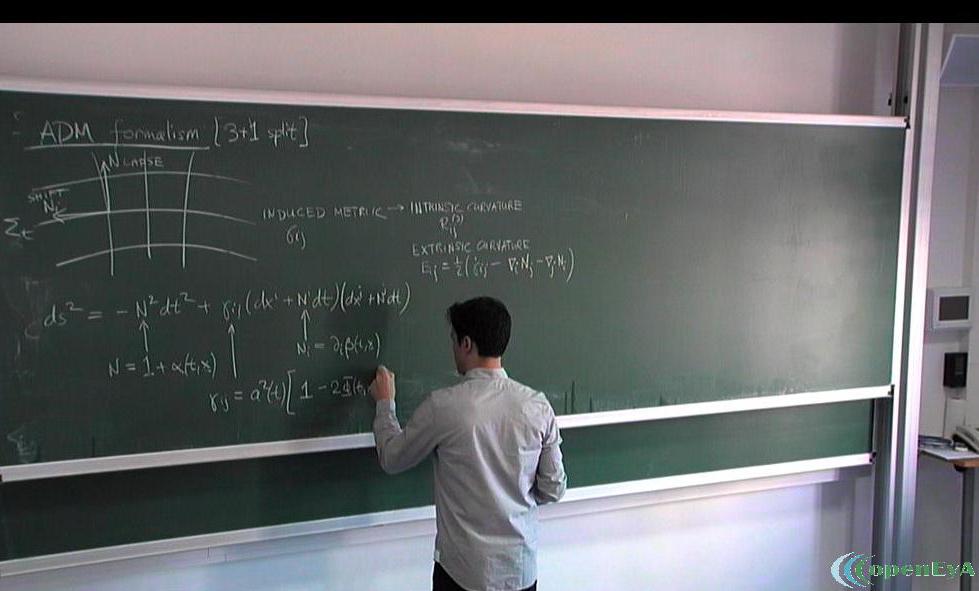 ADM formalism [3+1 split]
N LAPSE
SHIFT
N_i
Σ_t
INDUCED METRIC → INTRINSIC CURVATURE
γ_ij
R_ij^(3)
EXTRINSIC CURVATURE
E_ij = 1/2 (γ̇_ij − ∇_i N_j − ∇_j N_i)
ds² = − N² dt² + γ_ij (dx^i + N^i dt)(dx^j + N^j dt)
N = 1 + α(t,x)
N_i = ∂_i β(t,x)
γ_ij = a²(t) [ 1 − 2Φ(t,
openEyA